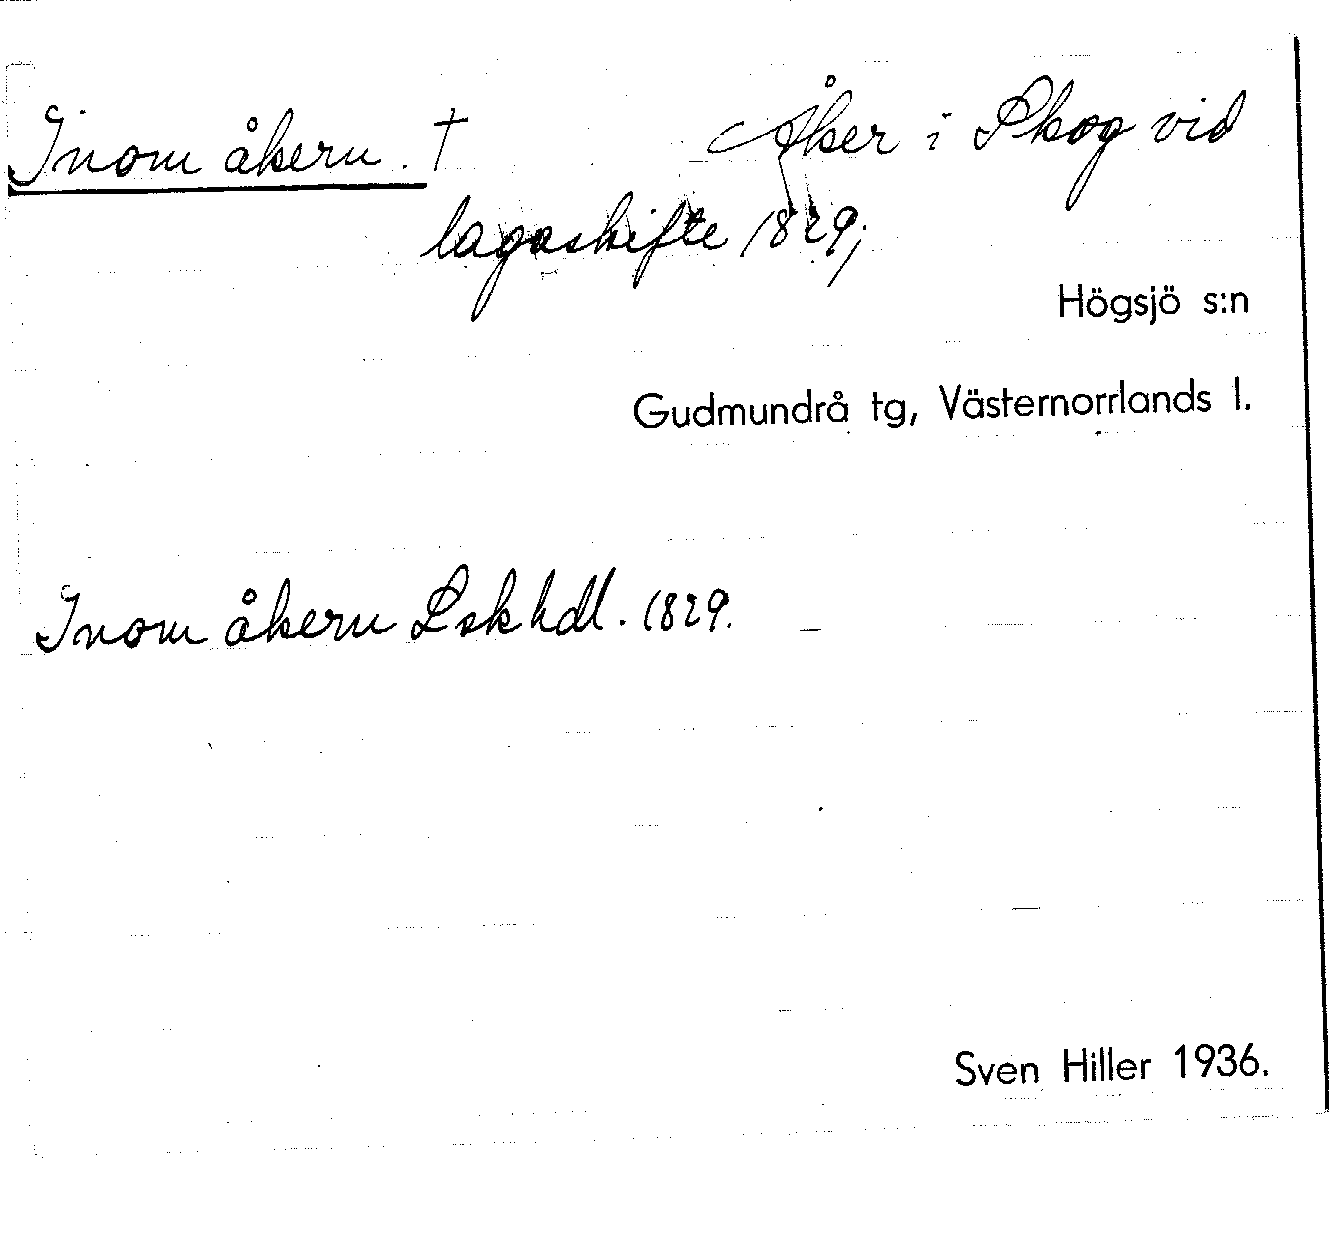 Inom åkern. † Åker i Skog vid
lagaskifte 1829;
Högsjö s:n
Gudmundrå tg, Västernorrlands l.
Inom åkern Lskhdl. 1829.
Sven Hiller 1936.